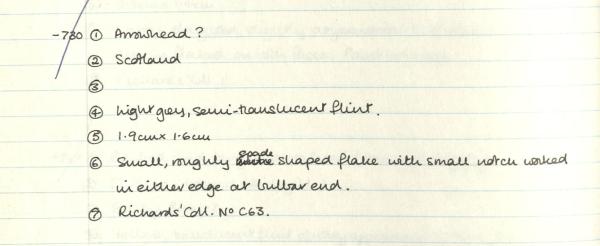 -730 ① Arrowhead ?
② Scotland
③
④ Light grey, semi-translucent flint.
⑤ 1.9cm x 1.6cm
⑥ Small, roughly spade shaped flake with small notch worked
in either edge at bulbar end.
⑦ Richards' Coll. No C63.